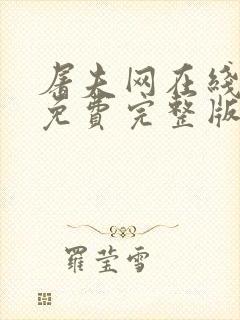 屠夫网在綫
免費完整版
羅莹雪